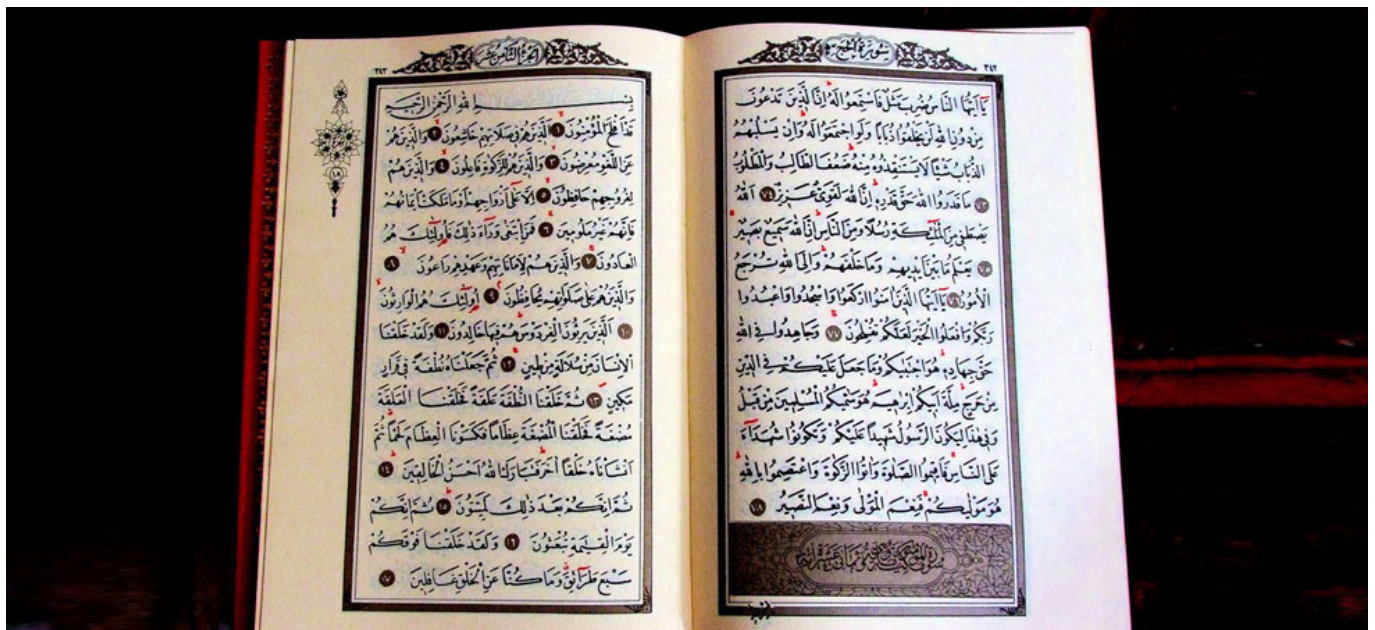 سورة الحج
٣٤٢
يَا أَيُّهَا النَّاسُ ضُرِبَ مَثَلٌ فَاسْتَمِعُوا لَهُ إِنَّ الَّذِينَ تَدْعُونَ
مِنْ دُونِ اللهِ لَنْ يَخْلُقُوا ذُبَابًا وَلَوِ اجْتَمَعُوا لَهُ وَإِنْ يَسْلُبْهُمُ
الذُّبَابُ شَيْئًا لَا يَسْتَنْقِذُوهُ مِنْهُ ضَعُفَ الطَّالِبُ وَالْمَطْلُوبُ
٧٣ مَا قَدَرُوا اللهَ حَقَّ قَدْرِهِ إِنَّ اللهَ لَقَوِيٌّ عَزِيزٌ ٧٤ اَللهُ
يَصْطَفِي مِنَ الْمَلٰئِكَةِ رُسُلًا وَمِنَ النَّاسِ إِنَّ اللهَ سَمِيعٌ بَصِيرٌ
٧٥ يَعْلَمُ مَا بَيْنَ أَيْدِيهِمْ وَمَا خَلْفَهُمْ وَإِلَى اللهِ تُرْجَعُ
الْأُمُورُ ٧٦ يَا أَيُّهَا الَّذِينَ اٰمَنُوا ارْكَعُوا وَاسْجُدُوا وَاعْبُدُوا
رَبَّكُمْ وَافْعَلُوا الْخَيْرَ لَعَلَّكُمْ تُفْلِحُونَ ٧٧ وَجَاهِدُوا فِي اللهِ
حَقَّ جِهَادِهِ هُوَ اجْتَبٰيكُمْ وَمَا جَعَلَ عَلَيْكُمْ فِي الدِّينِ
مِنْ حَرَجٍ مِلَّةَ أَبِيكُمْ إِبْرٰهِيمَ هُوَ سَمّٰيكُمُ الْمُسْلِمِينَ مِنْ قَبْلُ
وَفِي هٰذَا لِيَكُونَ الرَّسُولُ شَهِيدًا عَلَيْكُمْ وَتَكُونُوا شُهَدَاءَ
عَلَى النَّاسِ فَأَقِيمُوا الصَّلٰوةَ وَاٰتُوا الزَّكٰوةَ وَاعْتَصِمُوا بِاللهِ
هُوَ مَوْلٰيكُمْ فَنِعْمَ الْمَوْلٰى وَنِعْمَ النَّصِيرُ ٧٨
الجزء الثامن عشر
٣٤٣
١٨
بِسْمِ اللهِ الرَّحْمٰنِ الرَّحِيمِ
قَدْ أَفْلَحَ الْمُؤْمِنُونَ ١ اَلَّذِينَ هُمْ فِي صَلَاتِهِمْ خَاشِعُونَ ٢ وَالَّذِينَ هُمْ
عَنِ اللَّغْوِ مُعْرِضُونَ ٣ وَالَّذِينَ هُمْ لِلزَّكٰوةِ فَاعِلُونَ ٤ وَالَّذِينَ هُمْ
لِفُرُوجِهِمْ حَافِظُونَ ٥ إِلَّا عَلٰى أَزْوَاجِهِمْ أَوْ مَا مَلَكَتْ أَيْمَانُهُمْ
فَإِنَّهُمْ غَيْرُ مَلُومِينَ ٦ فَمَنِ ابْتَغٰى وَرَاءَ ذٰلِكَ فَأُولٰئِكَ هُمُ
الْعَادُونَ ٧ وَالَّذِينَ هُمْ لِأَمَانَاتِهِمْ وَعَهْدِهِمْ رَاعُونَ ٨
وَالَّذِينَ هُمْ عَلٰى صَلَوَاتِهِمْ يُحَافِظُونَ ٩ أُولٰئِكَ هُمُ الْوَارِثُونَ
١٠ اَلَّذِينَ يَرِثُونَ الْفِرْدَوْسَ هُمْ فِيهَا خَالِدُونَ ١١ وَلَقَدْ خَلَقْنَا
الْإِنْسَانَ مِنْ سُلَالَةٍ مِنْ طِينٍ ١٢ ثُمَّ جَعَلْنَاهُ نُطْفَةً فِي قَرَارٍ
مَكِينٍ ١٣ ثُمَّ خَلَقْنَا النُّطْفَةَ عَلَقَةً فَخَلَقْنَا الْعَلَقَةَ
مُضْغَةً فَخَلَقْنَا الْمُضْغَةَ عِظَامًا فَكَسَوْنَا الْعِظَامَ لَحْمًا ثُمَّ
أَنْشَأْنَاهُ خَلْقًا اٰخَرَ فَتَبَارَكَ اللهُ أَحْسَنُ الْخَالِقِينَ ١٤
ثُمَّ إِنَّكُمْ بَعْدَ ذٰلِكَ لَمَيِّتُونَ ١٥ ثُمَّ إِنَّكُمْ
يَوْمَ الْقِيٰمَةِ تُبْعَثُونَ ١٦ وَلَقَدْ خَلَقْنَا فَوْقَكُمْ
سَبْعَ طَرَائِقَ وَمَا كُنَّا عَنِ الْخَلْقِ غَافِلِينَ ١٧